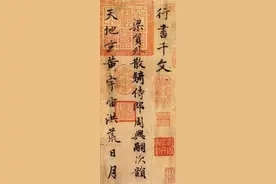 行書千文
梁員外散騎侍郎周興嗣次韻
天地玄黃宇宙洪荒日月